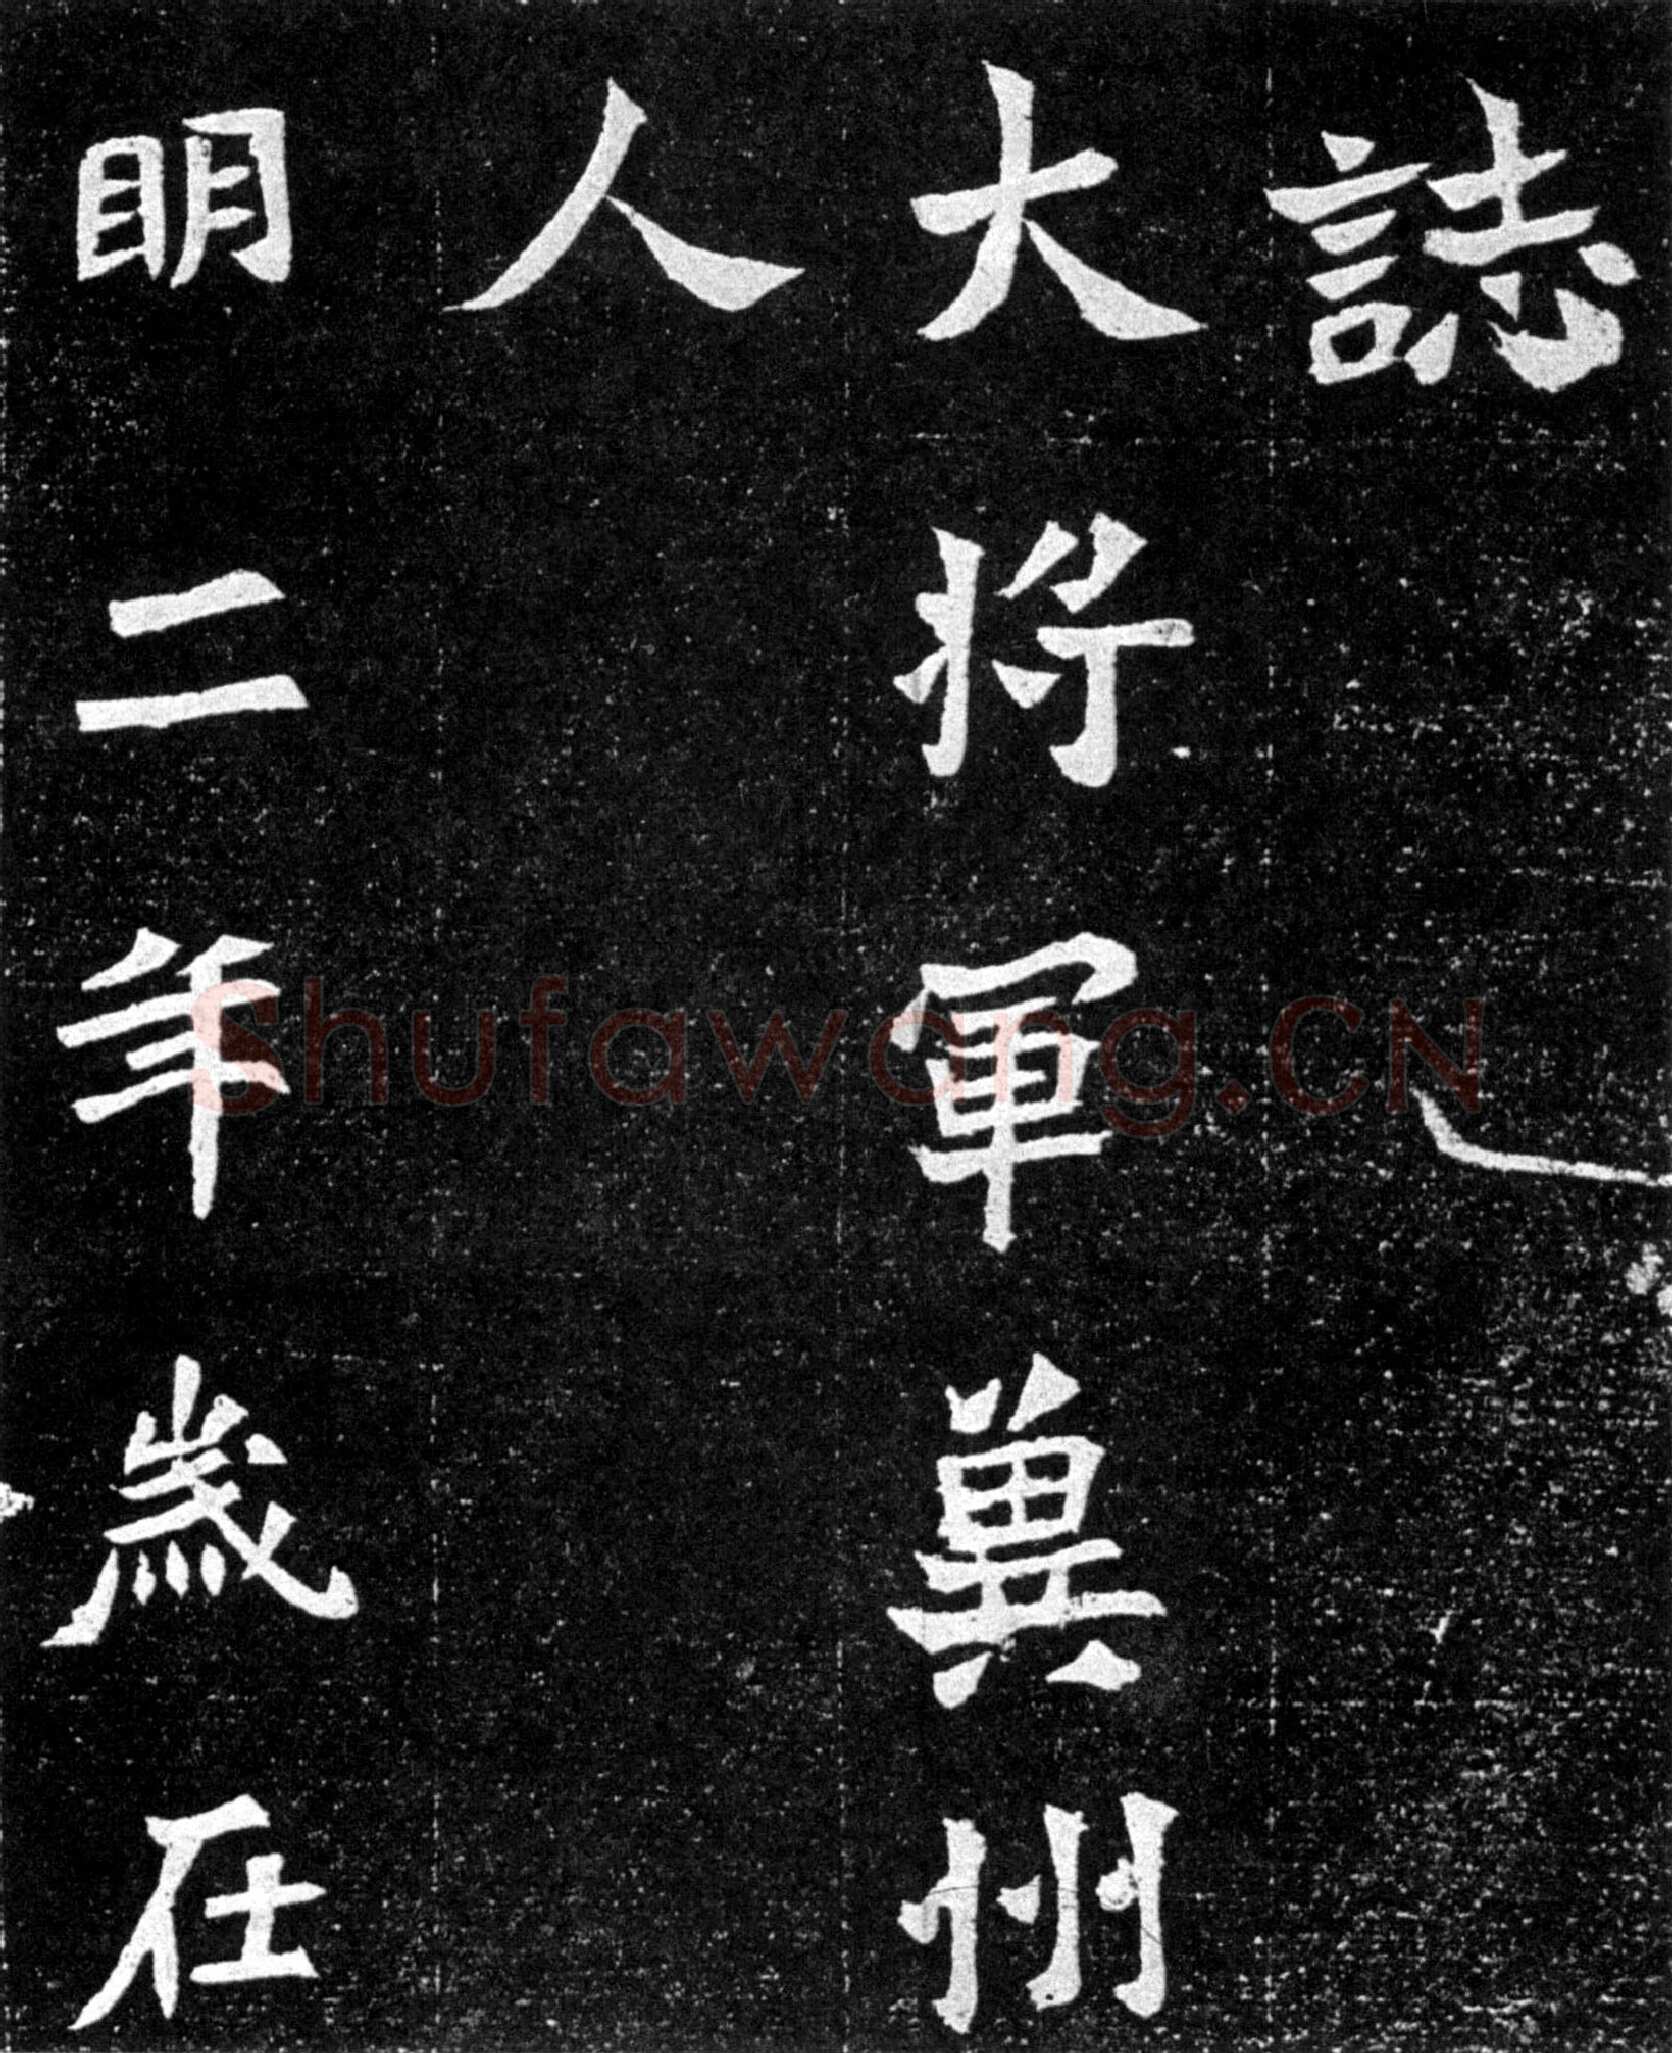 誌
大将軍冀州
人
明二年歲在
Shufawang.CN